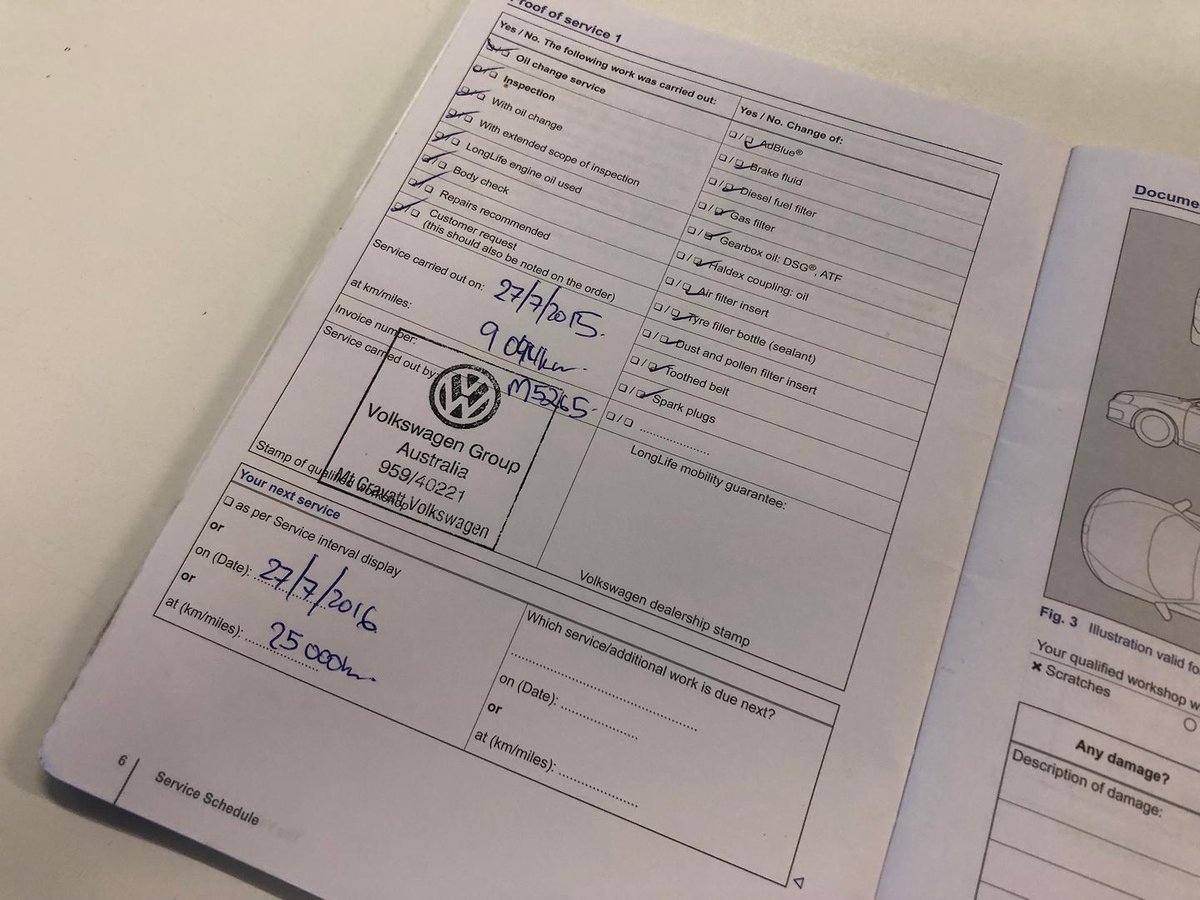 Proof of service 1
Yes / No. The following work was carried out:
Oil change service
Inspection
With oil change
With extended scope of inspection
LongLife engine oil used
Body check
Repairs recommended
Customer request
(this should also be noted on the order)
Service carried out on: 27/7/2015
at km/miles: 9 094km
Invoice number: M5265
Service carried out by
Volkswagen Group
Australia
959/40221
Mt Gravatt Volkswagen
Stamp of qualified workshop
Yes / No. Change of:
AdBlue®
Brake fluid
Diesel fuel filter
Gas filter
Gearbox oil: DSG®, ATF
Haldex coupling: oil
Air filter insert
Tyre filler bottle (sealant)
Dust and pollen filter insert
Toothed belt
Spark plugs
LongLife mobility guarantee:
Volkswagen dealership stamp
Your next service
as per Service interval display
or
on (Date): 27/7/2016
or
at (km/miles): 25 000km
Which service/additional work is due next?
on (Date):
or
at (km/miles):
6
Service Schedule
Fig. 3 Illustration valid
Your qualified workshop
Scratches
Any damage?
Description of damage: